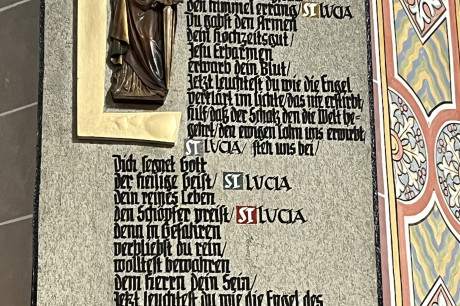 den himmel
ST LUCIA
Du gabst den Armen
dein Hochzeitsgut/
Jesu Erbarmen
erwarb dein Blut/
Jetzt leuchtest du wie die Engel
verklärt im Lichte/das nie erstirbt/
hilf daß der Schatz den die Welt be-
gehrt/den ewigen Lohn uns erwirbt/
ST LUCIA/ steh uns bei/
Dich segnet Gott
der heilige Geist/ ST LUCIA
dein reines Leben
den Schöpfer preist/ ST LUCIA
denn in Gefahren
verbliebst du rein/
wolltest bewahren
dem Herrn dein Sein/
Jetzt leuchtest du wie die Engel des